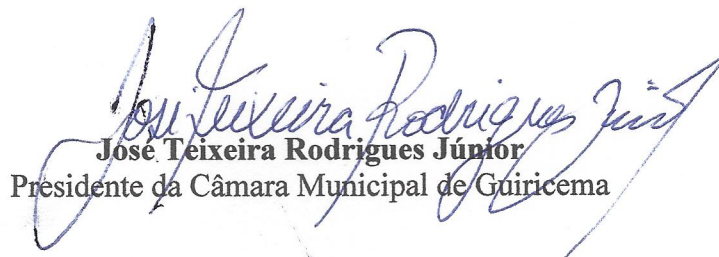 José Teixeira Rodrigues Júnior
José Teixeira Rodrigues Júnior
Presidente da Câmara Municipal de Guiricema